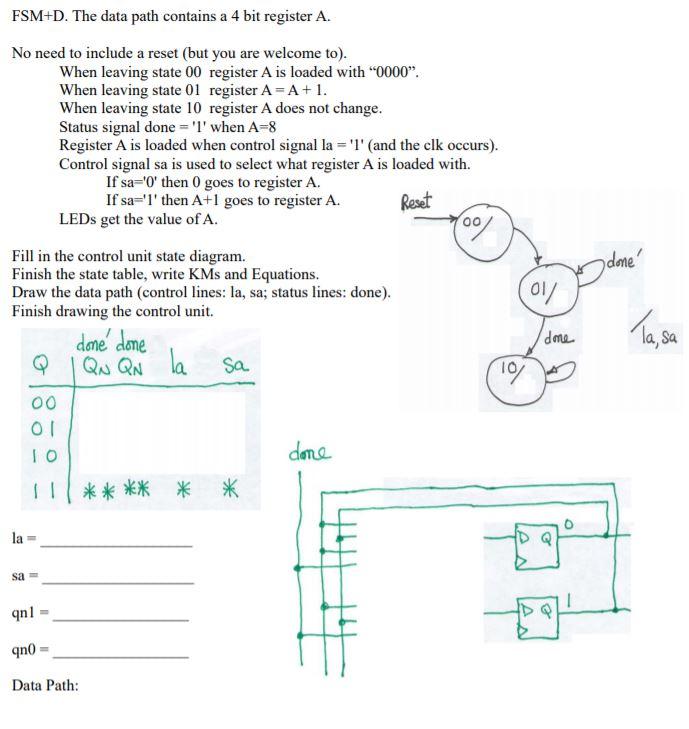 FSM+D. The data path contains a 4 bit register A.
No need to include a reset (but you are welcome to).
When leaving state 00 register A is loaded with “0000”.
When leaving state 01 register A = A + 1.
When leaving state 10 register A does not change.
Status signal done = '1' when A=8
Register A is loaded when control signal la = '1' (and the clk occurs).
Control signal sa is used to select what register A is loaded with.
If sa='0' then 0 goes to register A.
If sa='1' then A+1 goes to register A.
LEDs get the value of A.
Fill in the control unit state diagram.
Finish the state table, write KMs and Equations.
Draw the data path (control lines: la, sa; status lines: done).
Finish drawing the control unit.
Reset
00/
done'
01/
done
/la, sa
10/
done' done
Q QN QN la sa
00
01
10
11 ** ** * *
la =
sa =
qn1 =
qn0 =
done
D Q 0
D Q 1
Data Path: